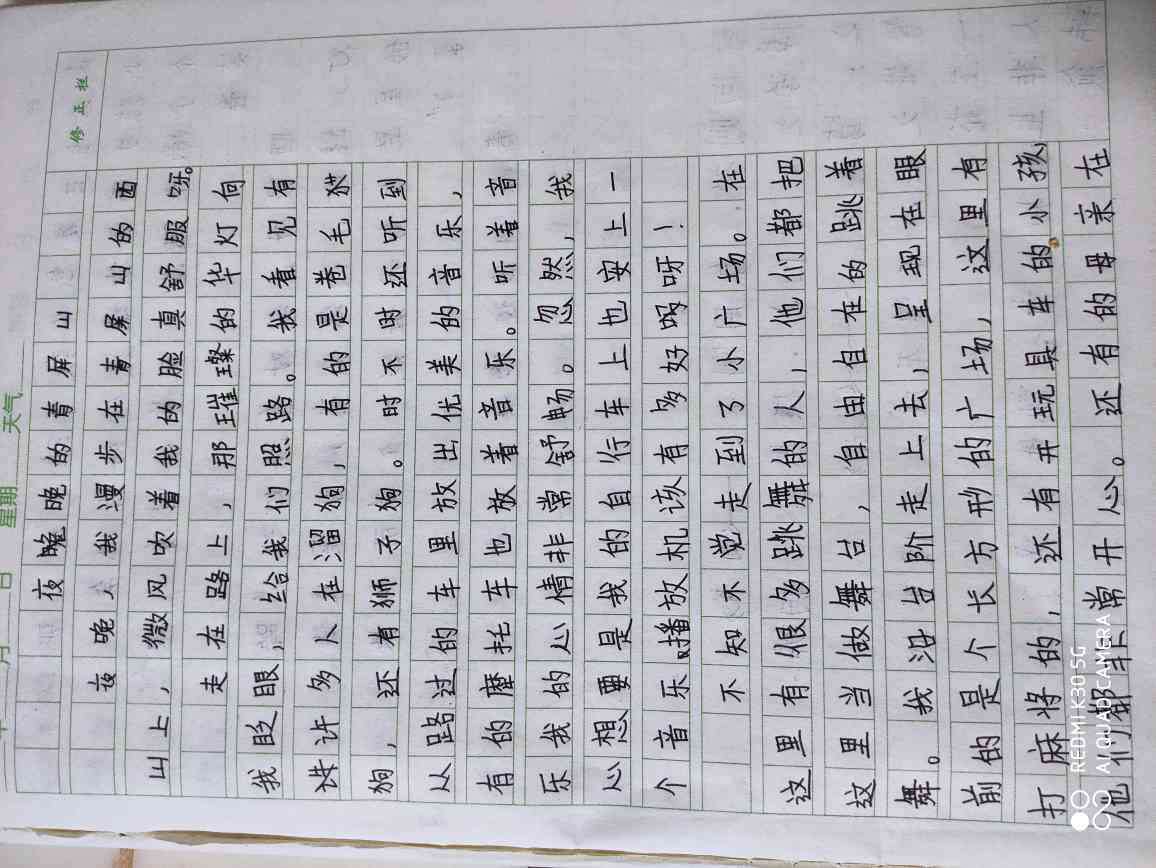 星期 天气
修正栏
夜晚的青屏山
夜晚，我漫步在青屏山的西
山上，微风吹着我的脸真舒服呀。
走在路上，那璀璨的华灯向
我眨眼，给我们照路。我看见有
许多人在溜狗，有的是卷毛
狗，还有狮子狗。时不时还听到
从路过的车里放出优美的音乐，
有的摩托车也放着音乐。听着音
乐我的心情非常舒畅。忽然，我
心想要是我的自行车上也安上一
个音乐播放机该有多好呀！
不知不觉走到了小广场。在
这里有很多跳舞的人，他们都把
这里当做舞台，自由自在的跳着
舞。我沿台阶走上去，呈现在眼
前的是个长方形的广场，这里有
打麻将的，还有开玩具车的小孩
他们都非常开心。还有的母亲在
REDMI K30 5G
AI QUAD CAMERA